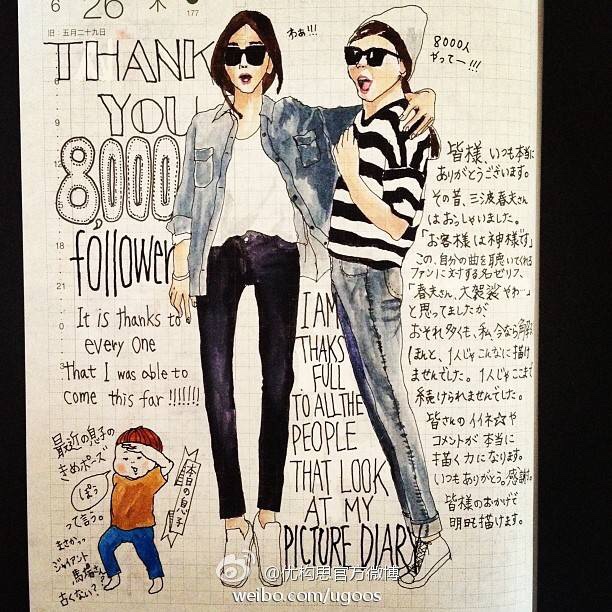 6
26
木
177
旧・五月二十九日
THANK
YOU
8,000
follower
It is thanks to
every One
That I was able to
come this far !!!!!!!
わぁ!!!
8000人
やってー!!!
皆様、いつも本当に
ありがとうございます。
その昔、三波春夫さん
はおっしゃいました。
「お客様は神様です」
この、自分の曲を聴いてくれる
ファンに対する名ゼリフ、
「春夫さん、大袈裟やわ…」
と思ってましたが
おそれ多くも、私、今なら解
ほんと、1人じゃこんなに描け
ませんでした。1人じゃここまで
続けられませんでした。
皆さんのイイネ☆や
コメントが本当に
描く力になります。
いつもありがとう。感謝
皆様のおかげで
明日も描けます。
I AM
THAKS
FULL
TO ALL THE
PEOPLE
THAT LOOK
AT MY
PICTURE DIARY
最近の息子の
きめポーズ
ぽぅ
って言う。
まさかっ
ジャイアント
馬場さん
古くない?
本日の息子
9
12
18
21
0
3
@优构思官方微博
weibo.com/ugoos